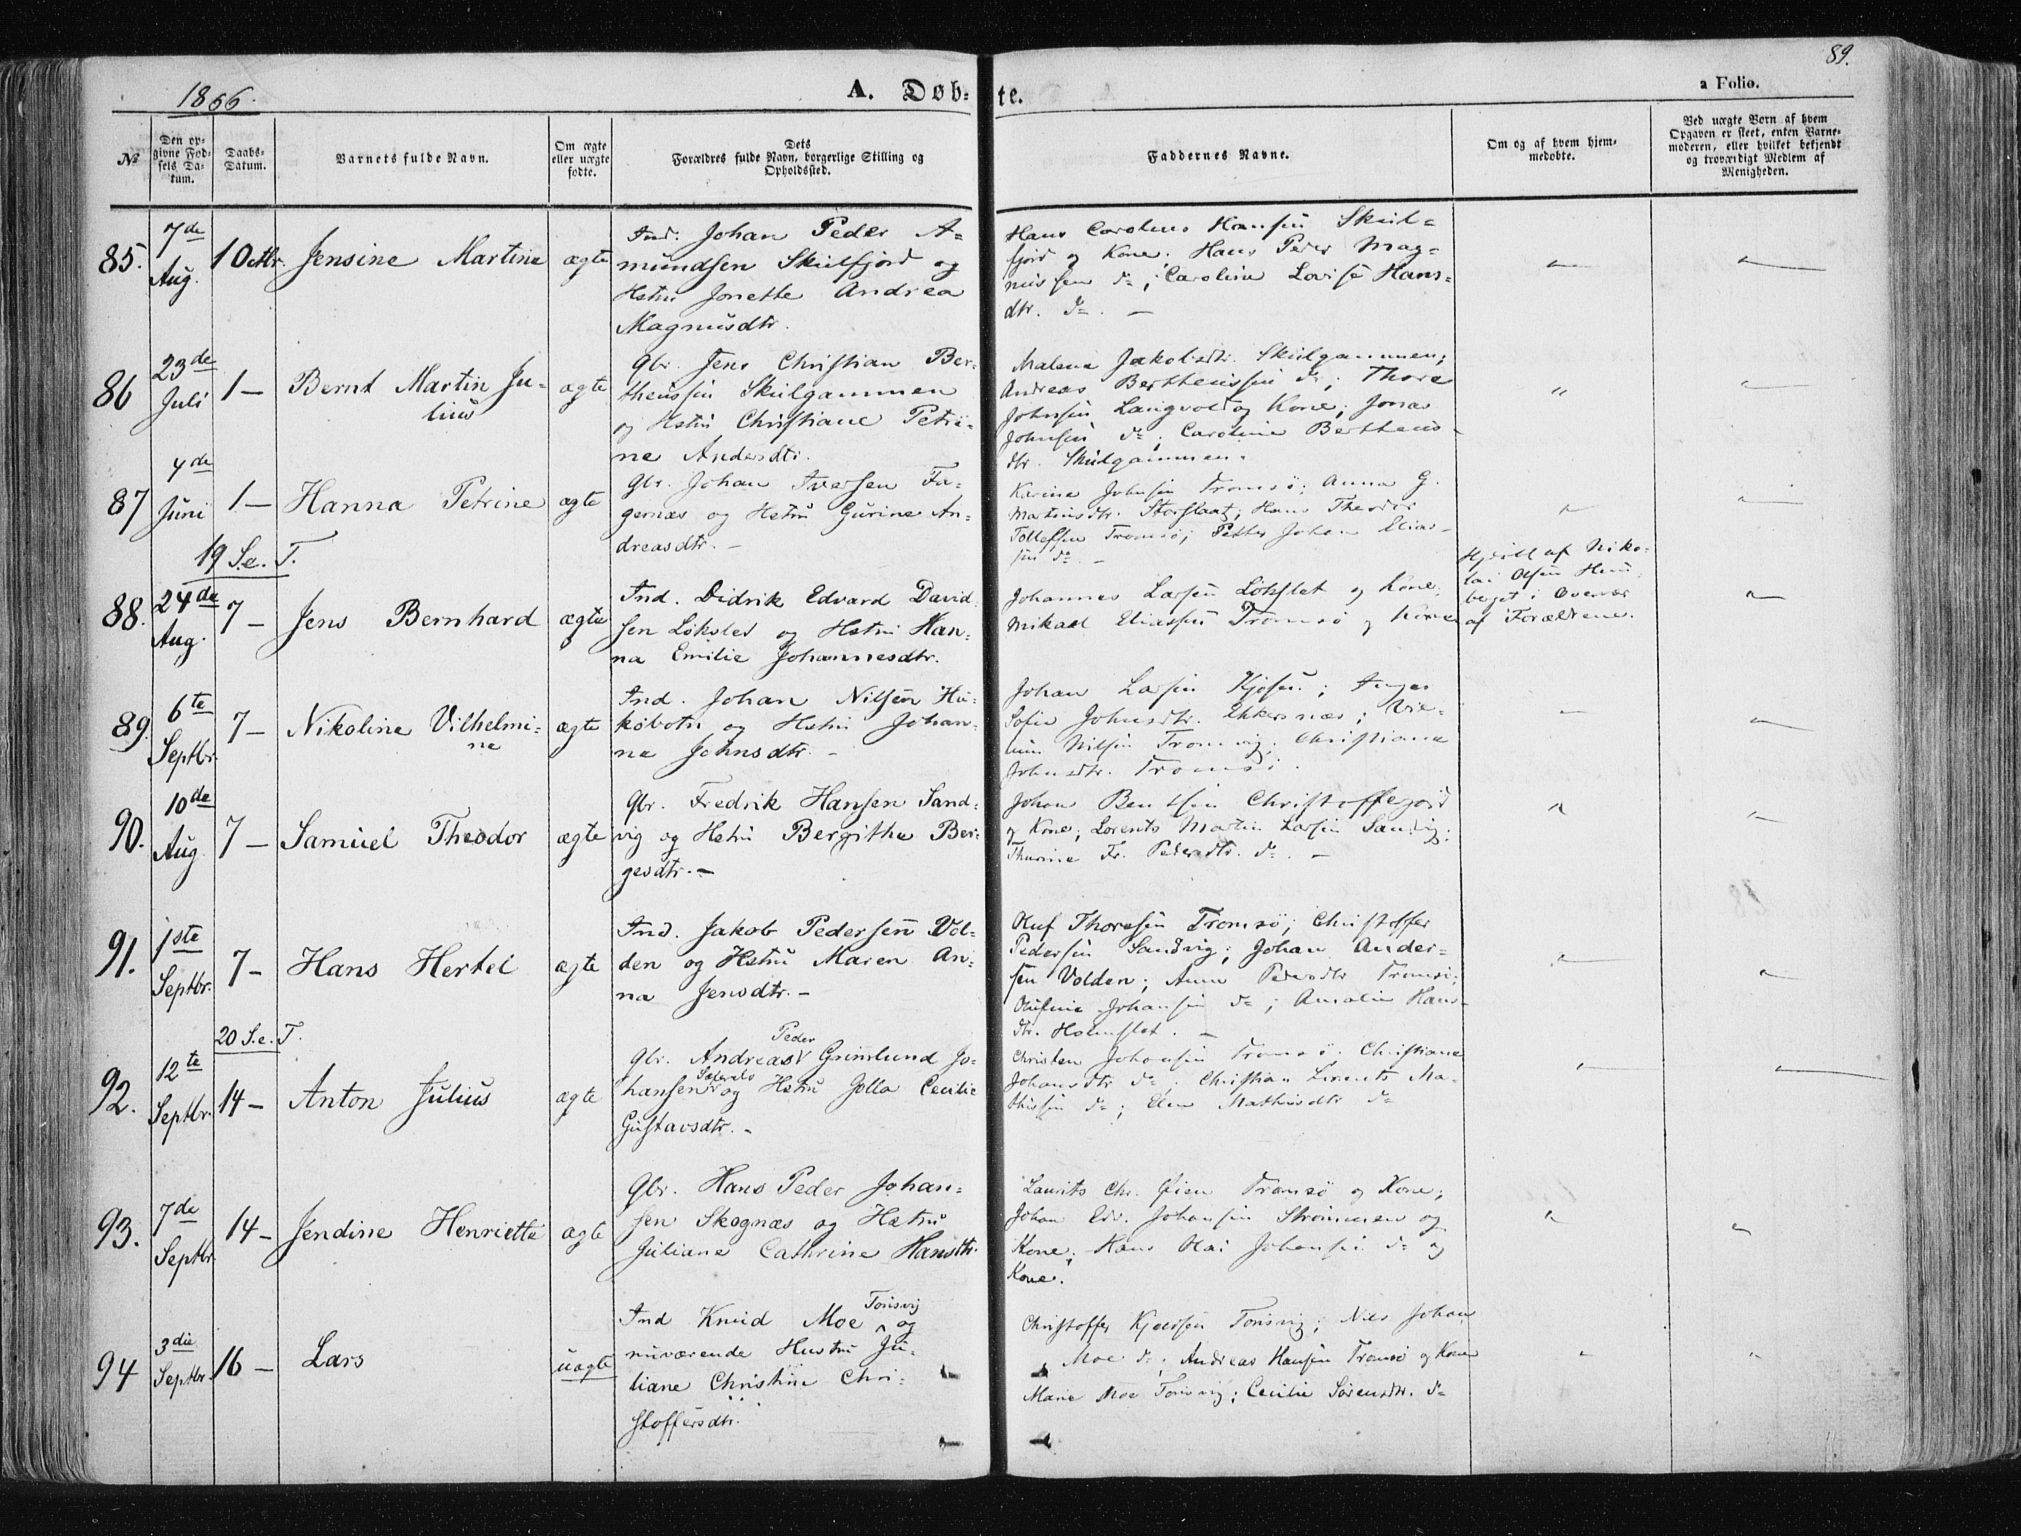 1866.
A. Døb-
te.
89.
a Folio.
No
Den op-
givne Fød-
sels Da-
tum.
Daabs-
Datum.
Barnets fulde Navn.
Om ægte
eller uægte
fødte.
Dets
Forældres fulde Navn, borgerlige Stilling og
Opholdssted.
Faddernes Navne.
Om og af hvem hjem-
medøbte.
Ved uægte Børn af hvem
Opgaven er skeet, enten Barne-
moderen, eller hvilket bekjendt
og troværdigt Medlem af
Menigheden.
85.
7de
Aug.
1 Octbr.
Jensine Martine
ægte
Ind. Johan Peder A-
mundsen Skulfjord og
Hstru Jonette Andrea
Magnusdtr.
Hans Carolius Hansen Skul-
fjord og Kone; Hans Peder Mag-
nussen do; Caroline Lovise Hans-
dtr. do. -
86
23de
Juli
1 -
Bernt Martin Ju-
lius
ægte
Gbr. Jens Christian Ber-
theussen Skulgammen
og Hstru Christiane Petri-
ne Andersdtr.
Malena Jakobsdtr. Skulgammen;
Andreas Bertheussen do; Thore
Johnsen Langvold og Kone; Jonas
Johnsen do; Caroline Bertheus-
dtr. Skulgammen.
87
4de
Juni
1 -
Hanna Petrine
ægte
Gbr. Johan Iversen Fa-
gernæs og Hstru Gurine An-
dreasdtr. -
Karine Johnsen Tromsø; Anna G.
Martinsdtr. Storslaat; Hans Theodor
Tollefsen Tromsø; Petter Johan Elias-
sen do. -
19 S. e. T.
88.
24de
Aug.
7 -
Jens Bernhard
ægte
Ind. Didrik Edvard David-
sen Løksled og Hstru Han-
na Emilie Johannesdtr.
Johannes Larsen Løkslet og Kone;
Mikael Eliassen Tromsø og Kone
Hjemd. af Niko-
lai Olsen
i Overvær
af Forældrene.
89
6te
Septbr.
7 -
Nikoline Vilhelmi-
ne
ægte
Ind. Johan Nilsen Hu-
købotn og Hstru Johan-
ne Johnsdtr. -
Johan Larsen Kjosen; Inger
Sofie Johnsdtr. Ekkersnæs;
Nilsen Tromvig; Christiane
Johnsdtr. Tromsø.
90.
10de
Aug
7 -
Samuel Theodor
ægte
Gbr. Fredrik Hansen Sand-
vig og Hstru Bergitha Ber-
gesdtr. -
Johan Bentsen Christoffejord
og Kone; Lorents Martin Larsen Sandvig;
Thurine Fr. Pedersdtr. do. -
91.
1ste
Septbr.
7 -
Hans Hertel
ægte
Ind. Jakob Pedersen Vol-
den og Hstru Maren An-
na Jensdtr. -
Oluf Thoresen Tromsø; Christoffer
Pedersen Sandvig; Johan Ander-
sen Volden; Anne Pedersdtr Tromsø;
Olufine Johansen do; Amalie Hans-
dtr. Holmslet. -
20 S. e. T.
92.
12te
Septbr.
14 -
Anton Julius
ægte
Peder
Gbr. Andreas Grimlund Jo-
hansen og Hstru Jolla Cecilie
Gustavsdtr. -
Christen Johansen Tromsø. Christiane
Johansdtr do; Christian Lorents Ma-
thisen do; Elen Mathisdtr do
93.
7de
Septbr.
14 -
Jendine Henriette
ægte
Gbr. Hans Peder Johan-
sen Skognæs og Hstru
Juliane Cathrine Hansdtr.
Laurits Chr. Øien Tromsø og Kone;
Johan Edv. Johansen Strømmen og
Kone; Hans Johansen do og
Kone.
94
3die
Septbr.
16 -
Lars
uægte
Tonsvig
Ind Knud Moe og
nuværende Hustru Ju-
liane Christine Chri-
stoffersdtr.
Christoffer Tonsvig; Nils Johan
Moe do; Andreas Hansen Tromsø og Kone
Marie Moe Tonsvig; Cecilie Sørensdtr. do